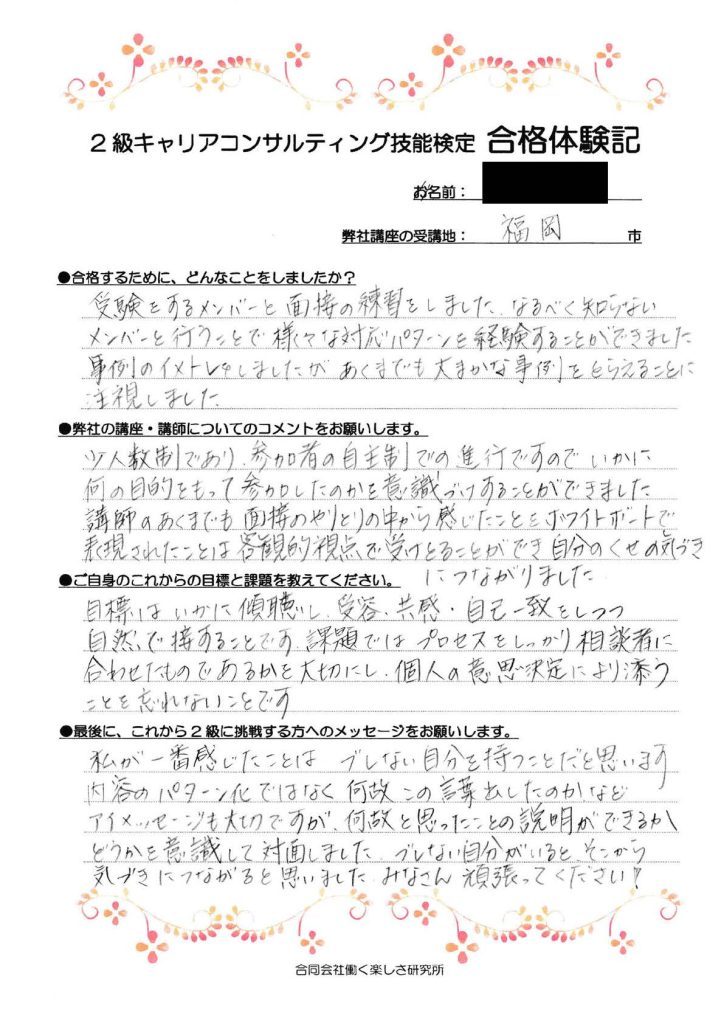 2級キャリアコンサルティング技能検定 合格体験記
お名前：
弊社講座の受講地： 福岡 市
●合格するために、どんなことをしましたか？
受験をするメンバーと面接の練習をしました、なるべく知らない
メンバーと行うことで様々な対応パターンを経験することができました
事例のイメトレもしましたが あくまでも大まかな事例をとらえることに
注視しました
●弊社の講座・講師についてのコメントをお願いします。
少人数制であり、参加者の自主制での進行ですので いかに
何の目的をもって参加したのかを意識づけすることができました
講師のあくまでも面接のやりとりの中から感じたことをホワイトボートで
表現されたことは客観的視点で受けとることができ 自分のくせの気づき
につながりました
●ご自身のこれからの目標と課題を教えてください。
目標は いかに傾聴し、受容・共感・自己一致をしつつ
自然で接することです、課題では プロセスをしっかり相談者に
合わせたものであるかを大切にし、個人の意思決定により添う
ことを忘れないことです
●最後に、これから2級に挑戦する方へのメッセージをお願いします。
私が一番感じたことは ブレない自分を持つことだと思います
内容のパターン化ではなく 何故この言葉出したのか、など
アイメッセージも大切ですが、何故と思ったことの説明ができるか
どうかを意識して対面しました、ブレない自分がいると、そこから
気づきにつながると思いました、みなさん 頑張ってください！
合同会社働く楽しさ研究所